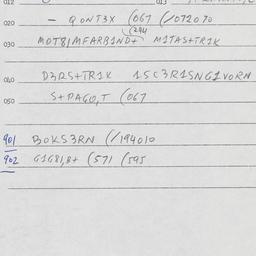 012 013
020 - QONT3X (067 (/072070
(294
030 MOT8IMFARBIND+ MITAS+TRIK
040 D3RS+TRIK ISC3RISNGIVORN
050 S+PAGO,T (067
901 BOKS3RN (/194010
902 GIG8I,8+ (571 (595